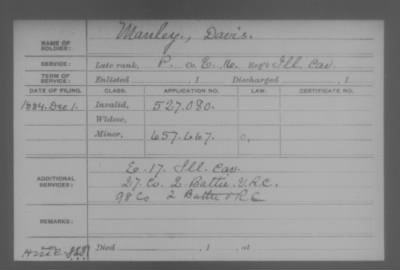 NAME OF SOLDIER: Manley, Davis.
SERVICE: Late rank, P. Co. E, 16, Reg't Ill. Cav.
TERM OF SERVICE: Enlisted , 1 Discharged , 1
DATE OF FILING. CLASS. APPLICATION NO. LAW. CERTIFICATE NO.
1884. Dec 1. Invalid, 527.080.
Widow,
Minor, 657.667. C.
ADDITIONAL SERVICES: E. 17. Ill. Cav.
27. Co. 2 Batt'n V.R.C.
98 Co 2 Batt'n V R C
REMARKS:
Died , 1 , at